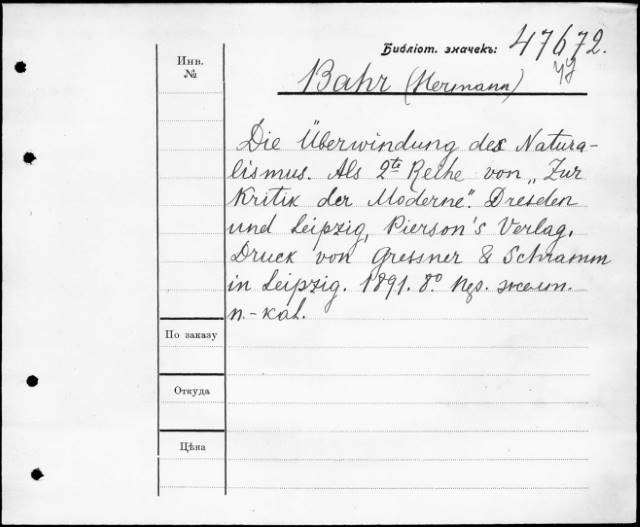 Библіот. значекъ: 47672.
Инв.
№
Bahr (Hermann)
Die Überwindung des Natura-
lismus. Als 2te Reihe von „Zur
Kritik der Moderne". Dresden
und Leipzig, Pierson's Verlag,
Druck von Gressner & Schramm
in Leipzig. 1891. 8°
п.-каl.
По заказу
Откуда
Цѣна